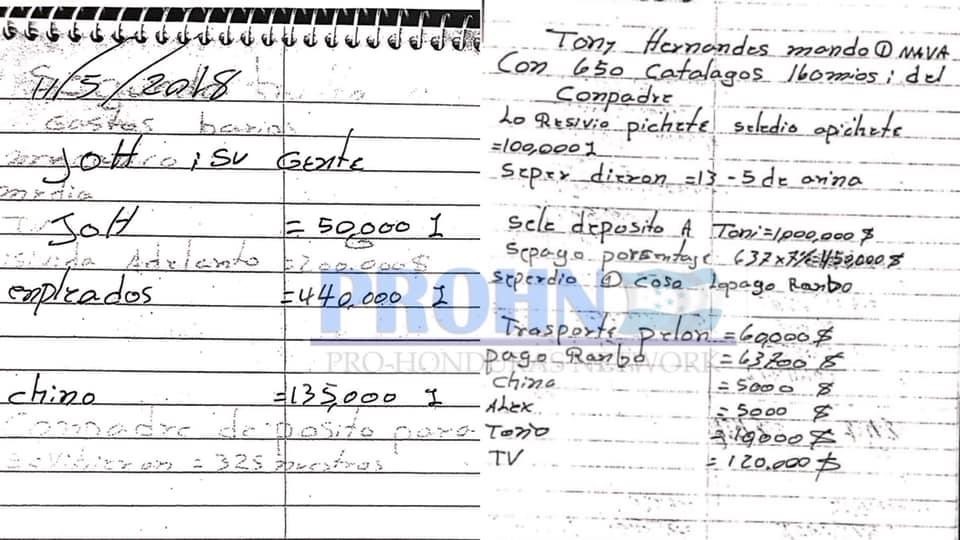 11/5/2018
Gastos
JOH i su Gente
media
JOH = 50,000 L
Adelanto = 200.000$
enpleados = 440.000 L
chino = 135,000 L
deposito para
= 325 nuestros
Tony Hernandes mando ① nava
Con 650 Catalagos 160 mios i del
Conpadre
Lo Resivio pichete seledio apichete
=100,000 L
Seper dieron =13 -5 de arina
sele deposito A Toni=1,000,000 $
sepago porsentaje 637x
seperdio ① cosa lopago Ranbo
Trasporte pelon =60,000 $
pago Ranbo = 63700 $
chino = 5000 $
Alex = 5000 $
Tono = 10,000 $
TV = 120.000 $
PROHN
PRO-HONDURAS NETWORK